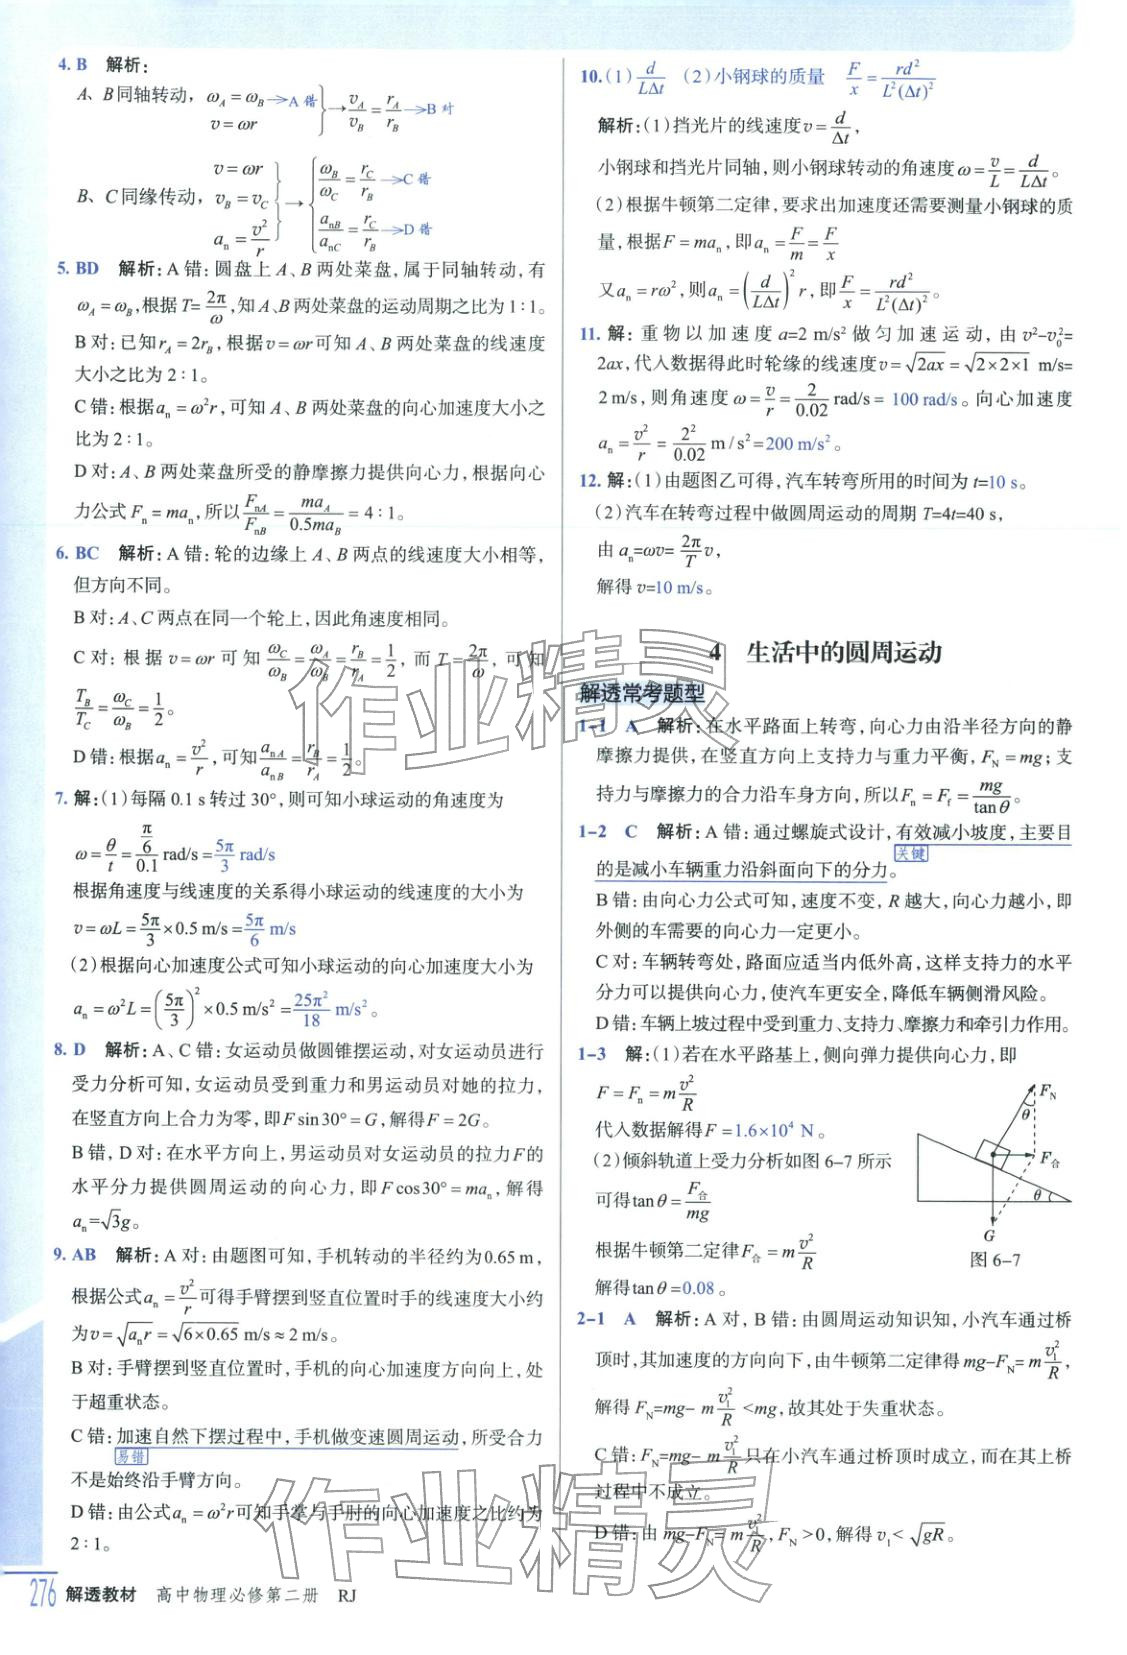 4. B 解析：
A、B同轴转动，ω_A = ω_B → A 错
v = ωr
→ v_A/v_B = r_A/r_B → B 对
B、C同缘传动，v = ωr
v_B = v_C
a_n = v²/r
→ ω_B/ω_C = r_C/r_B → C 错
a_nB/a_nC = r_C/r_B → D 错
5. BD 解析：A错：圆盘上A、B两处菜盘，属于同轴转动，有
ω_A = ω_B，根据T = 2π/ω，知A、B两处菜盘的运动周期之比为1∶1。
B对：已知r_A = 2r_B，根据v = ωr可知A、B两处菜盘的线速度
大小之比为2∶1。
C错：根据a_n = ω²r，可知A、B两处菜盘的向心加速度大小之
比为2∶1。
D对：A、B两处菜盘所受的静摩擦力提供向心力，根据向心
力公式F_n = ma_n，所以F_nA/F_nB = ma_A/0.5ma_B = 4∶1。
6. BC 解析：A错：轮的边缘上A、B两点的线速度大小相等，
但方向不同。
B对：A、C两点在同一个轮上，因此角速度相同。
C对：根据v = ωr可知ω_C/ω_B = ω_A/ω_B = r_B/r_A = 1/2，而T = 2π/ω，可知
T_B/T_C = ω_C/ω_B = 1/2。
D错：根据a_n = v²/r，可知a_nA/a_nB = r_B/r_A = 1/2。
7. 解：(1)每隔0.1 s转过30°，则可知小球运动的角速度为
ω = θ/t = (π/6)/0.1 rad/s = 5π/3 rad/s
根据角速度与线速度的关系得小球运动的线速度的大小为
v = ωL = 5π/3 × 0.5 m/s = 5π/6 m/s
(2)根据向心加速度公式可知小球运动的向心加速度大小为
a_n = ω²L = (5π/3)² × 0.5 m/s² = 25π²/18 m/s²。
8. D 解析：A、C错：女运动员做圆锥摆运动，对女运动员进行
受力分析可知，女运动员受到重力和男运动员对她的拉力，
在竖直方向上合力为零，即F sin30° = G，解得F = 2G。
B错，D对：在水平方向上，男运动员对女运动员的拉力F的
水平分力提供圆周运动的向心力，即F cos30° = ma_n，解得
a_n = √3g。
9. AB 解析：A对：由题图可知，手机转动的半径约为0.65 m，
根据公式a_n = v²/r可得手臂摆到竖直位置时手的线速度大小约
为v = √(a_n r) = √(6×0.65) m/s ≈ 2 m/s。
B对：手臂摆到竖直位置时，手机的向心加速度方向向上，处
于超重状态。
C错：加速自然下摆过程中，手机做变速圆周运动，所受合力
易错
不是始终沿手臂方向。
D错：由公式a_n = ω²r可知手掌与手肘的向心加速度之比约为
2∶1。
276 解透教材 高中物理必修第二册 RJ
10. (1) d/(LΔt) (2)小钢球的质量 F/x = rd²/(L²(Δt)²)
解析：(1)挡光片的线速度v = d/Δt，
小钢球和挡光片同轴，则小钢球转动的角速度ω = v/L = d/(LΔt)。
(2)根据牛顿第二定律，要求出加速度还需要测量小钢球的质
量，根据F = ma_n，即a_n = F/m = F/x
又a_n = rω²，则a_n = (d/(LΔt))² r，即F/x = rd²/(L²(Δt)²)。
11. 解：重物以加速度a=2 m/s²做匀加速运动，由v²-v₀²=
2ax，代入数据得此时轮缘的线速度v = √(2ax) = √(2×2×1) m/s=
2 m/s，则角速度ω = v/r = 2/0.02 rad/s = 100 rad/s。向心加速度
a_n = v²/r = 2²/0.02 m/s² = 200 m/s²。
12. 解：(1)由题图乙可得，汽车转弯所用的时间为t=10 s。
(2)汽车在转弯过程中做圆周运动的周期T=4t=40 s，
由a_n=ωv=2π/T v，
解得v=10 m/s。
4 生活中的圆周运动
解透常考题型
1-1 A 解析：在水平路面上转弯，向心力由沿半径方向的静
摩擦力提供，在竖直方向上支持力与重力平衡，F_N = mg；支
持力与摩擦力的合力沿车身方向，所以F_n = F_f = mg/tanθ。
1-2 C 解析：A错：通过螺旋式设计，有效减小坡度，主要目
关键
的是减小车辆重力沿斜面向下的分力。
B错：由向心力公式可知，速度不变，R越大，向心力越小，即
外侧的车需要的向心力一定更小。
C对：车辆转弯处，路面应适当内低外高，这样支持力的水平
分力可以提供向心力，使汽车更安全，降低车辆侧滑风险。
D错：车辆上坡过程中受到重力、支持力、摩擦力和牵引力作用。
1-3 解：(1)若在水平路基上，侧向弹力提供向心力，即
F = F_n = m v²/R
代入数据解得F = 1.6×10⁴ N。
(2)倾斜轨道上受力分析如图6-7所示
可得tanθ = F合/mg
根据牛顿第二定律F合 = m v²/R
解得tanθ=0.08。
F_N
θ
F合
θ
G
图6-7
2-1 A 解析：A对，B错：由圆周运动知识知，小汽车通过桥
顶时，其加速度的方向向下，由牛顿第二定律得mg-F_N= m v₁²/R，
解得F_N=mg- m v₁²/R <mg，故其处于失重状态。
C错：F_N=mg- m v₁²/R只在小汽车通过桥顶时成立，而在其上桥
过程中不成立。
D错：由mg-F_N = m v₁²/R，F_N >0，解得v₁< √(gR)。
作业精灵
作业精灵